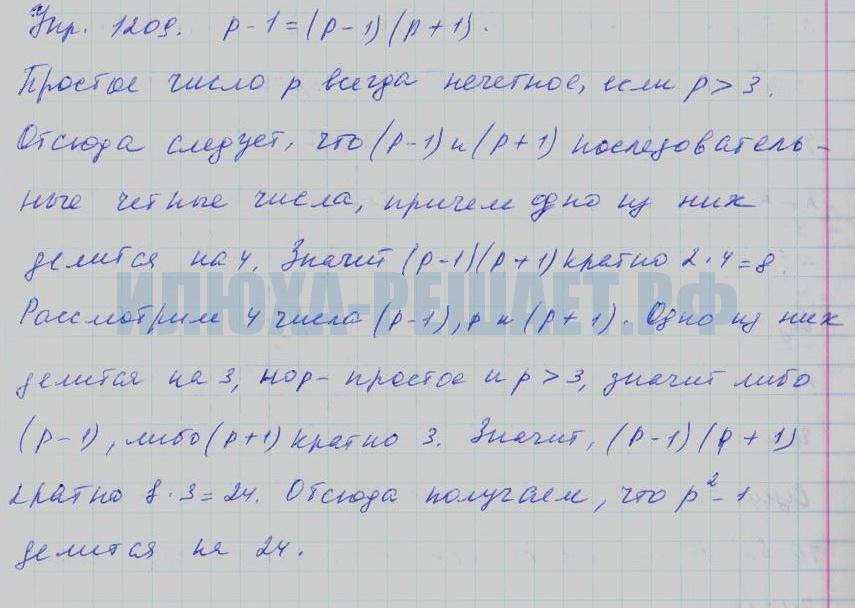 Упр. 1209. p - 1 = (p - 1)(p + 1).
Простое число p всегда нечетное, если p > 3.
Отсюда следует, что (p - 1) и (p + 1) последователь-
ные четные числа, причем одно из них
делится на 4. Значит (p - 1)(p + 1) кратно 2 · 4 = 8
ИЛЮХА-РЕШАЕТ.РФ
Рассмотрим 4 числа (p - 1), p и (p + 1). Одно из них
делится на 3, но p - простое и p > 3, значит либо
(p - 1), либо (p + 1) кратно 3. Значит, (p - 1)(p + 1)
кратно 8 · 3 = 24. Отсюда получаем, что p² - 1
делится на 24.